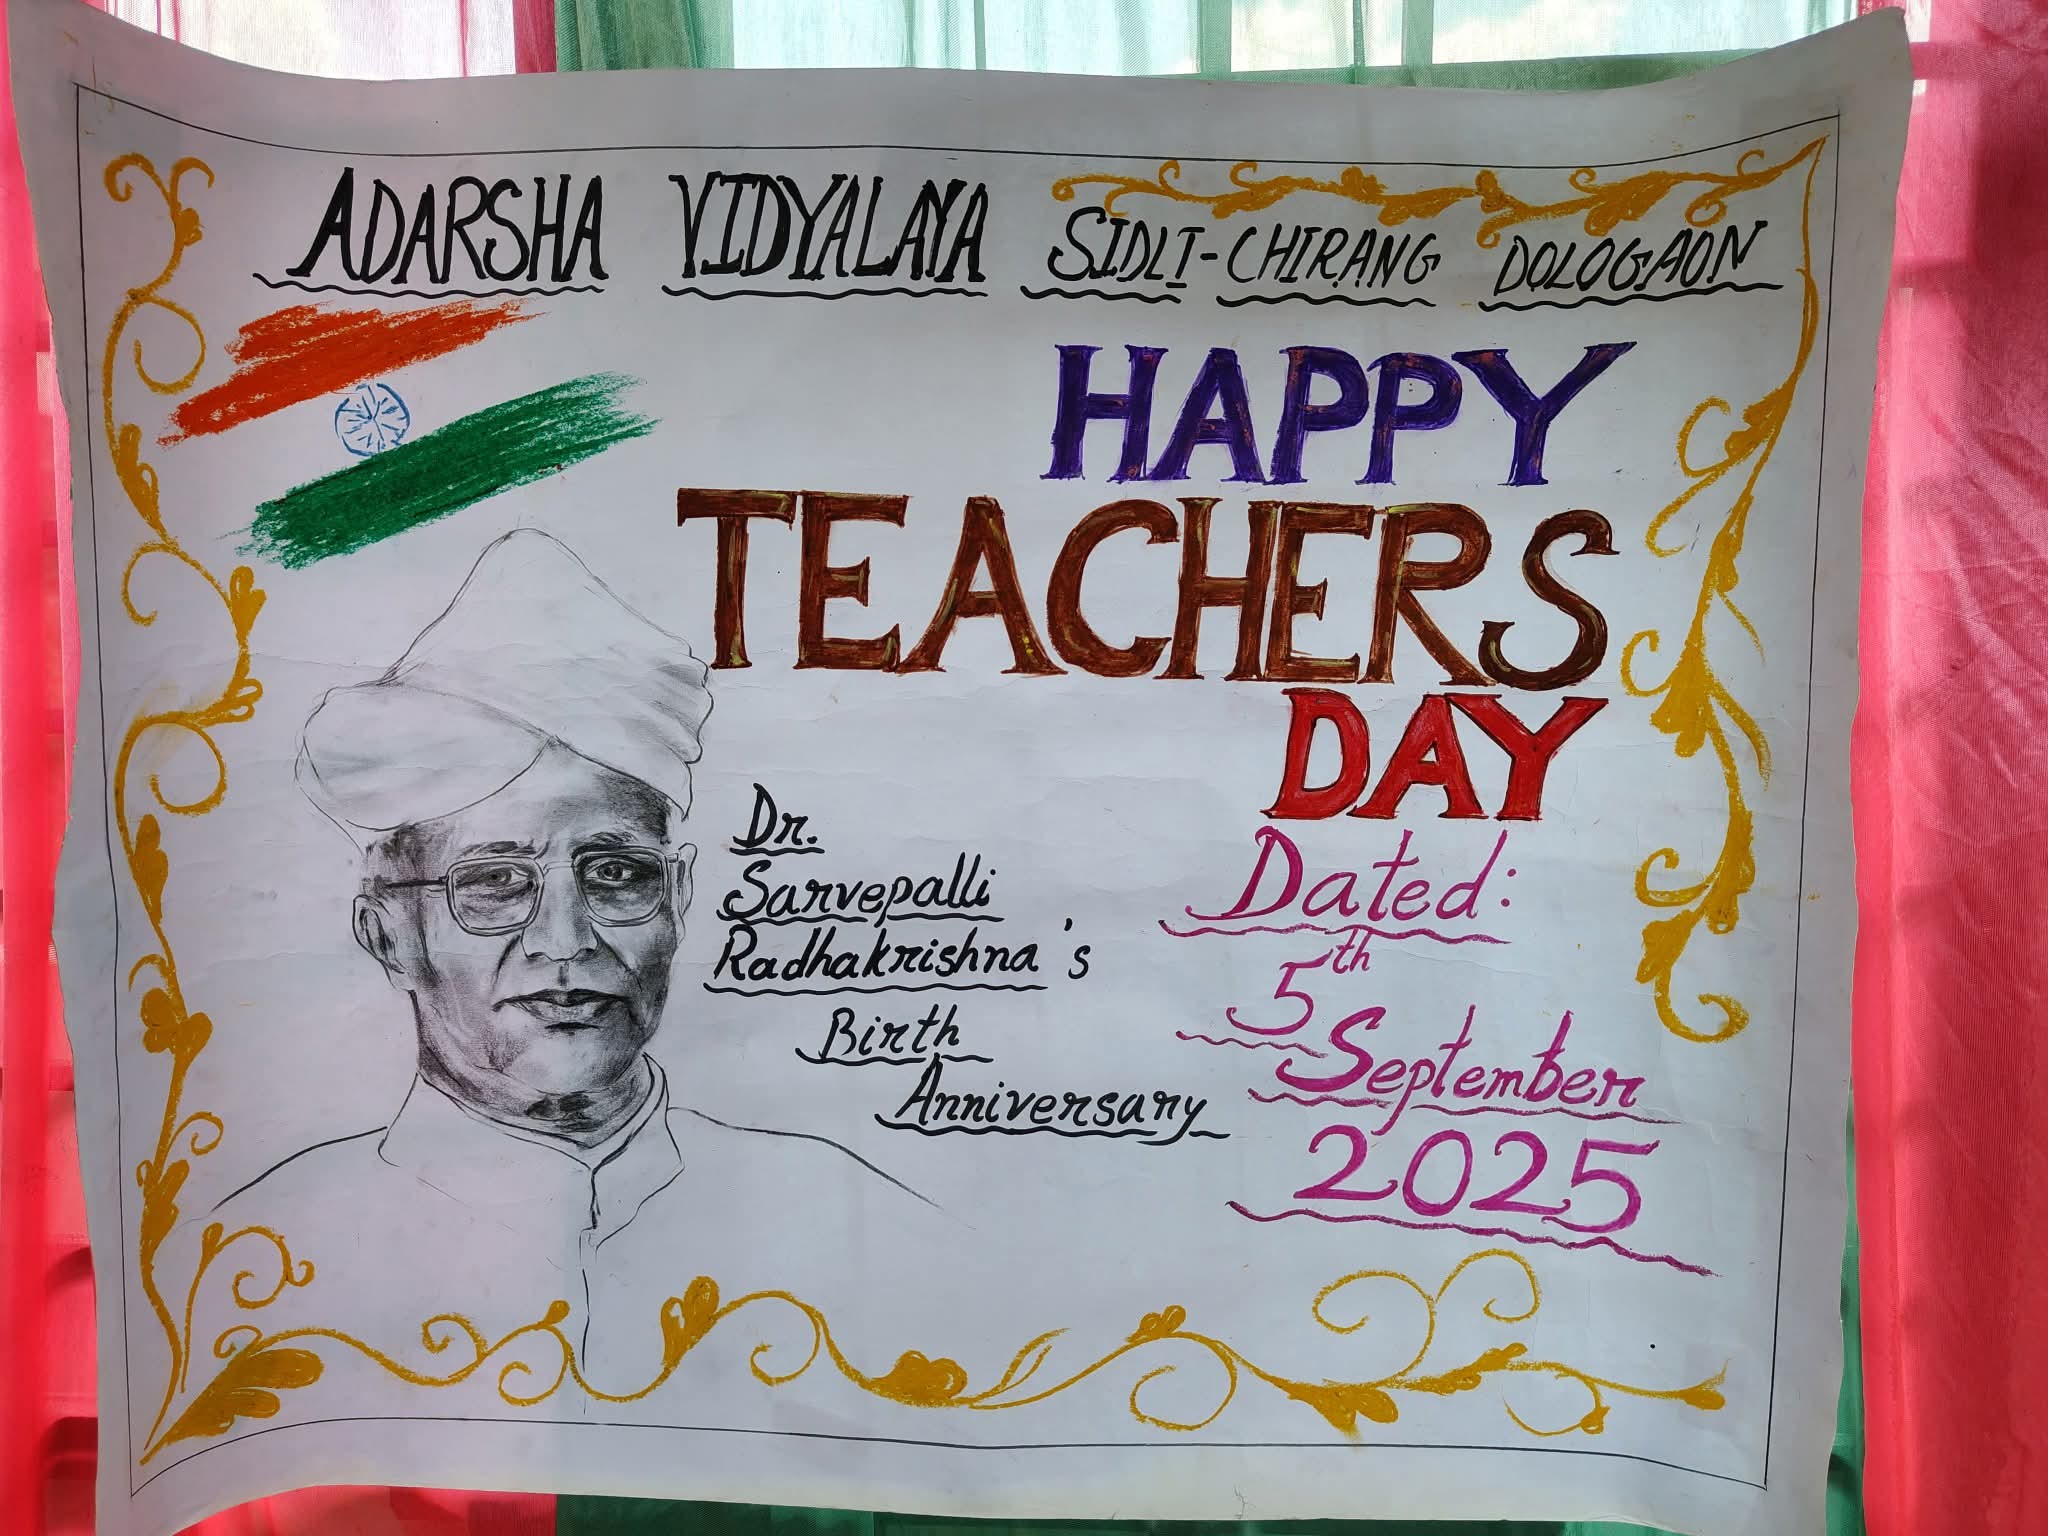 ADARSHA VIDYALAYA SIDLI-CHIRANG DOLOGAON
HAPPY
TEACHERS
DAY
Dr.
Sarvepalli
Radhakrishna's
Birth
Anniversary
Dated:
5th
September
2025